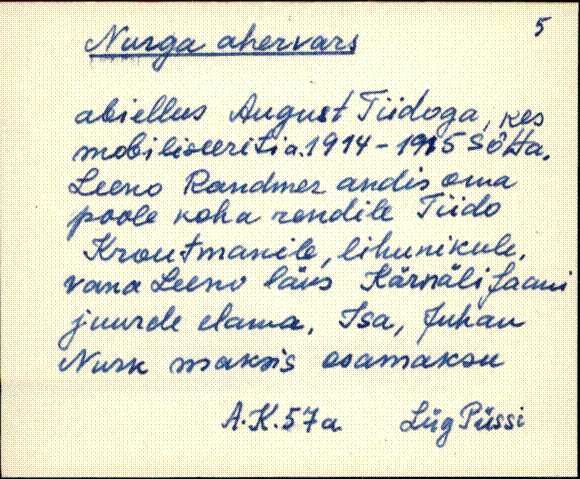 5
Nurga ahervars
abiellus August Tiidoga, kes
mobiliseeriti a. 1914-1915 sõtta.
Leeno Randmer andis oma
poole koha rendile Tiido
Kroutmanile, lihunikule,
vana Leeno läks Kärnäli Jaani
juurde elama. Isa, Juhan
Nurk maksis osamaksu
A.K. 57 a Lüg Püssi